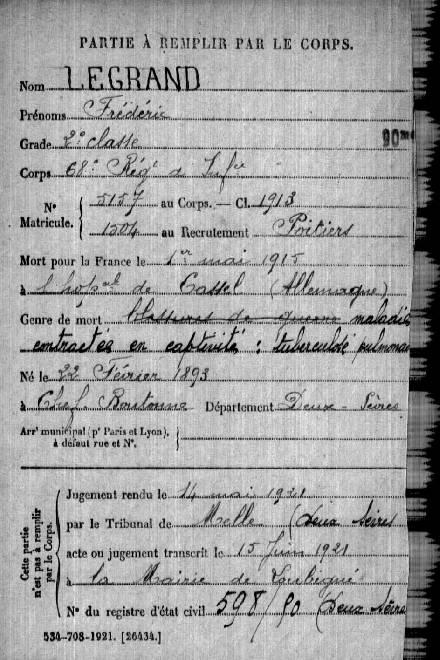 PARTIE À REMPLIR PAR LE CORPS.
Nom LEGRAND
Prénoms Frédéric
Grade 2e classe
Corps 68e Régt d'Infie
N° Matricule. { 5157 au Corps. — Cl. 1913
1504 au Recrutement Poitiers
Mort pour la France le 1er mai 1915
à l'hopal de Cassel (Allemagne)
Genre de mort blessures de guerre maladie
contractée en captivité : tuberculose pulmonaire
Né le 22 Février 1893
à Chef-Boutonne Département Deux-Sèvres
Arrt municipal (pr Paris et Lyon), à défaut rue et N°.
Cette partie n'est pas à remplir par le Corps.
Jugement rendu le 14 mai 1921
par le Tribunal de Melle (Deux Sèvres
acte ou jugement transcrit le 15 Juin 1921
à la Mairie de Loubigné
N° du registre d'état civil 598/90 (Deux Sèvres
534-708-1921. [26434.]